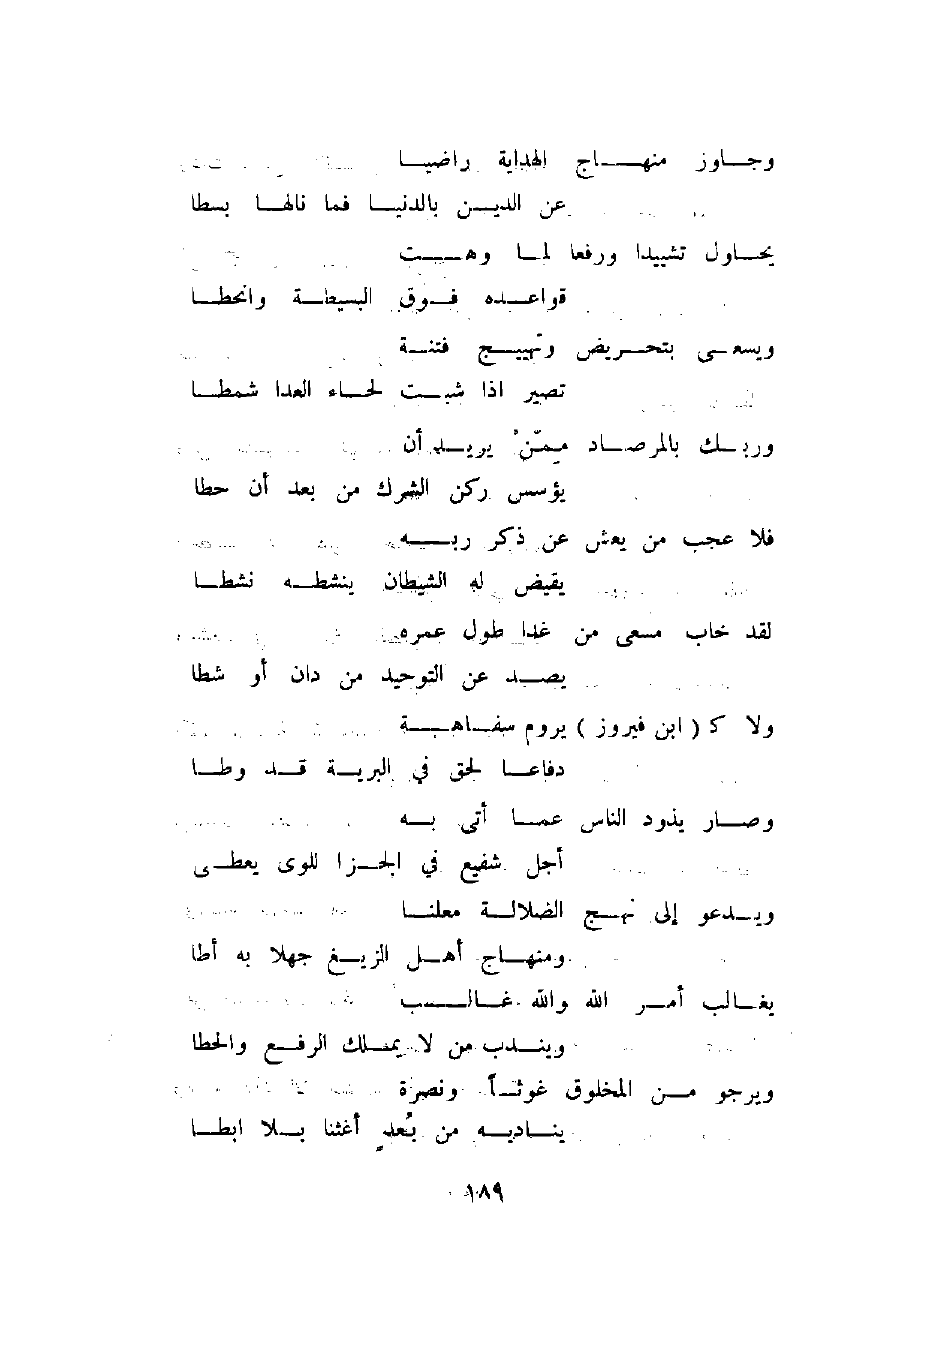 وجاوز منهاج الهداية راضيا
عن الدين بالدنيا فما نالها بسطا
يحاول تشييدا ورفعا لما وهت
قواعده فوق البسيطة وانحطا
ويسعى بتحريض وتهييج فتنة
تصير اذا شبت لحاء العدا شمطا
وربك بالمرصاد ممّن يريد أن
يؤسس ركن الشرك من بعد أن حطا
فلا عجب من يعش عن ذكر ربه
يقيض له الشيطان ينشطه نشطا
لقد خاب مسعى من غدا طول عمره
يصد عن التوحيد من دان أو شطا
ولا كـ ( ابن فيروز ) يروم سفاهة
دفاعا لحق في البرية قد وطا
وصار يذود الناس عما أتى به
أجل شفيع في الجزا للوى يعطى
ويدعو إلى نهج الضلالة معلنا
ومنهاج أهل الزيغ جهلا به أطا
يغالب أمر الله والله غالب
ويندب من لا يملك الرفع والحطا
ويرجو من المخلوق غوثاً ونصرة
يناديه من بُعدٍ أغثنا بلا ابطا
١٨٩